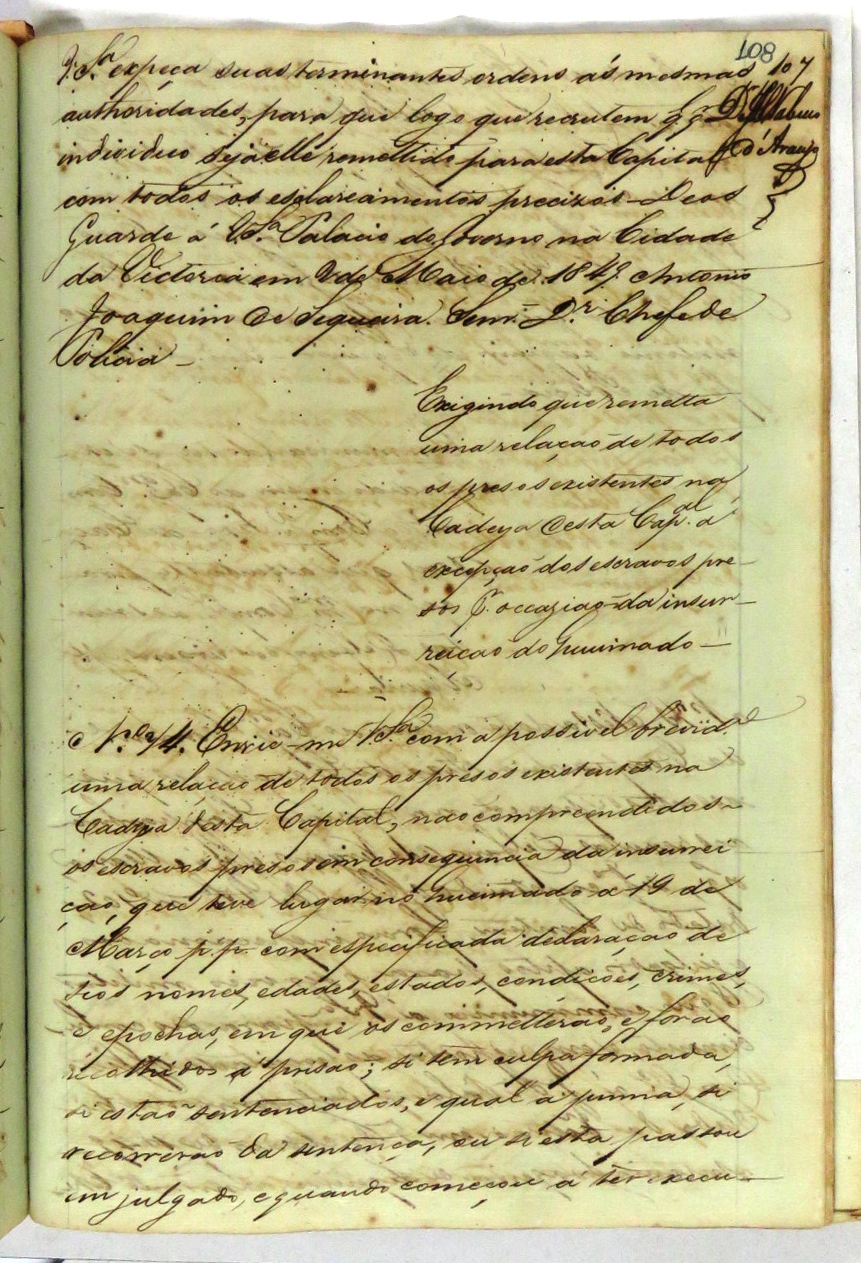 108
V.Sª. expeça suas terminantes ordens ás mesmas 107
authoridades, para que logo que recrutem q.q.r
individuo seja elle remettido para esta Capital d'Araujo
com todos os esclarecimentos precizos. Deos
Guarde á V.Sª. Palacio do Governo na Cidade
da Victoria em 2 de Maio de 1849. Antonio
Joaquim de Siqueira. Senr. Dr. Chefe de
Policia _
Exigindo que remetta
uma relação de todos
os presos existentes na
Cadeya desta Cap.al á
excepção dos escravos pre-
sos p. occazião da insur-
reiçao do Queimado _
74. Envie-me V.Sª com a possivel brevid.e
uma relação de todos os presos existentes na
Cadeya desta Capital, nao comprendidos
os escravos presos em consequencia da insurrei
ção, que teve lugar no Queimado á 19 de
Março p.p. com especificada declaração de
seos nomes, edades, estados, condições, crimes,
e epochas, em que os commetterão, e forão
recolhidos á prisão; si tem culpa formada,
si estão sentenciados, e qual a penna, si
recorrerão da sentença, ou si esta passou
em julgado, e quando começou á ter execu-